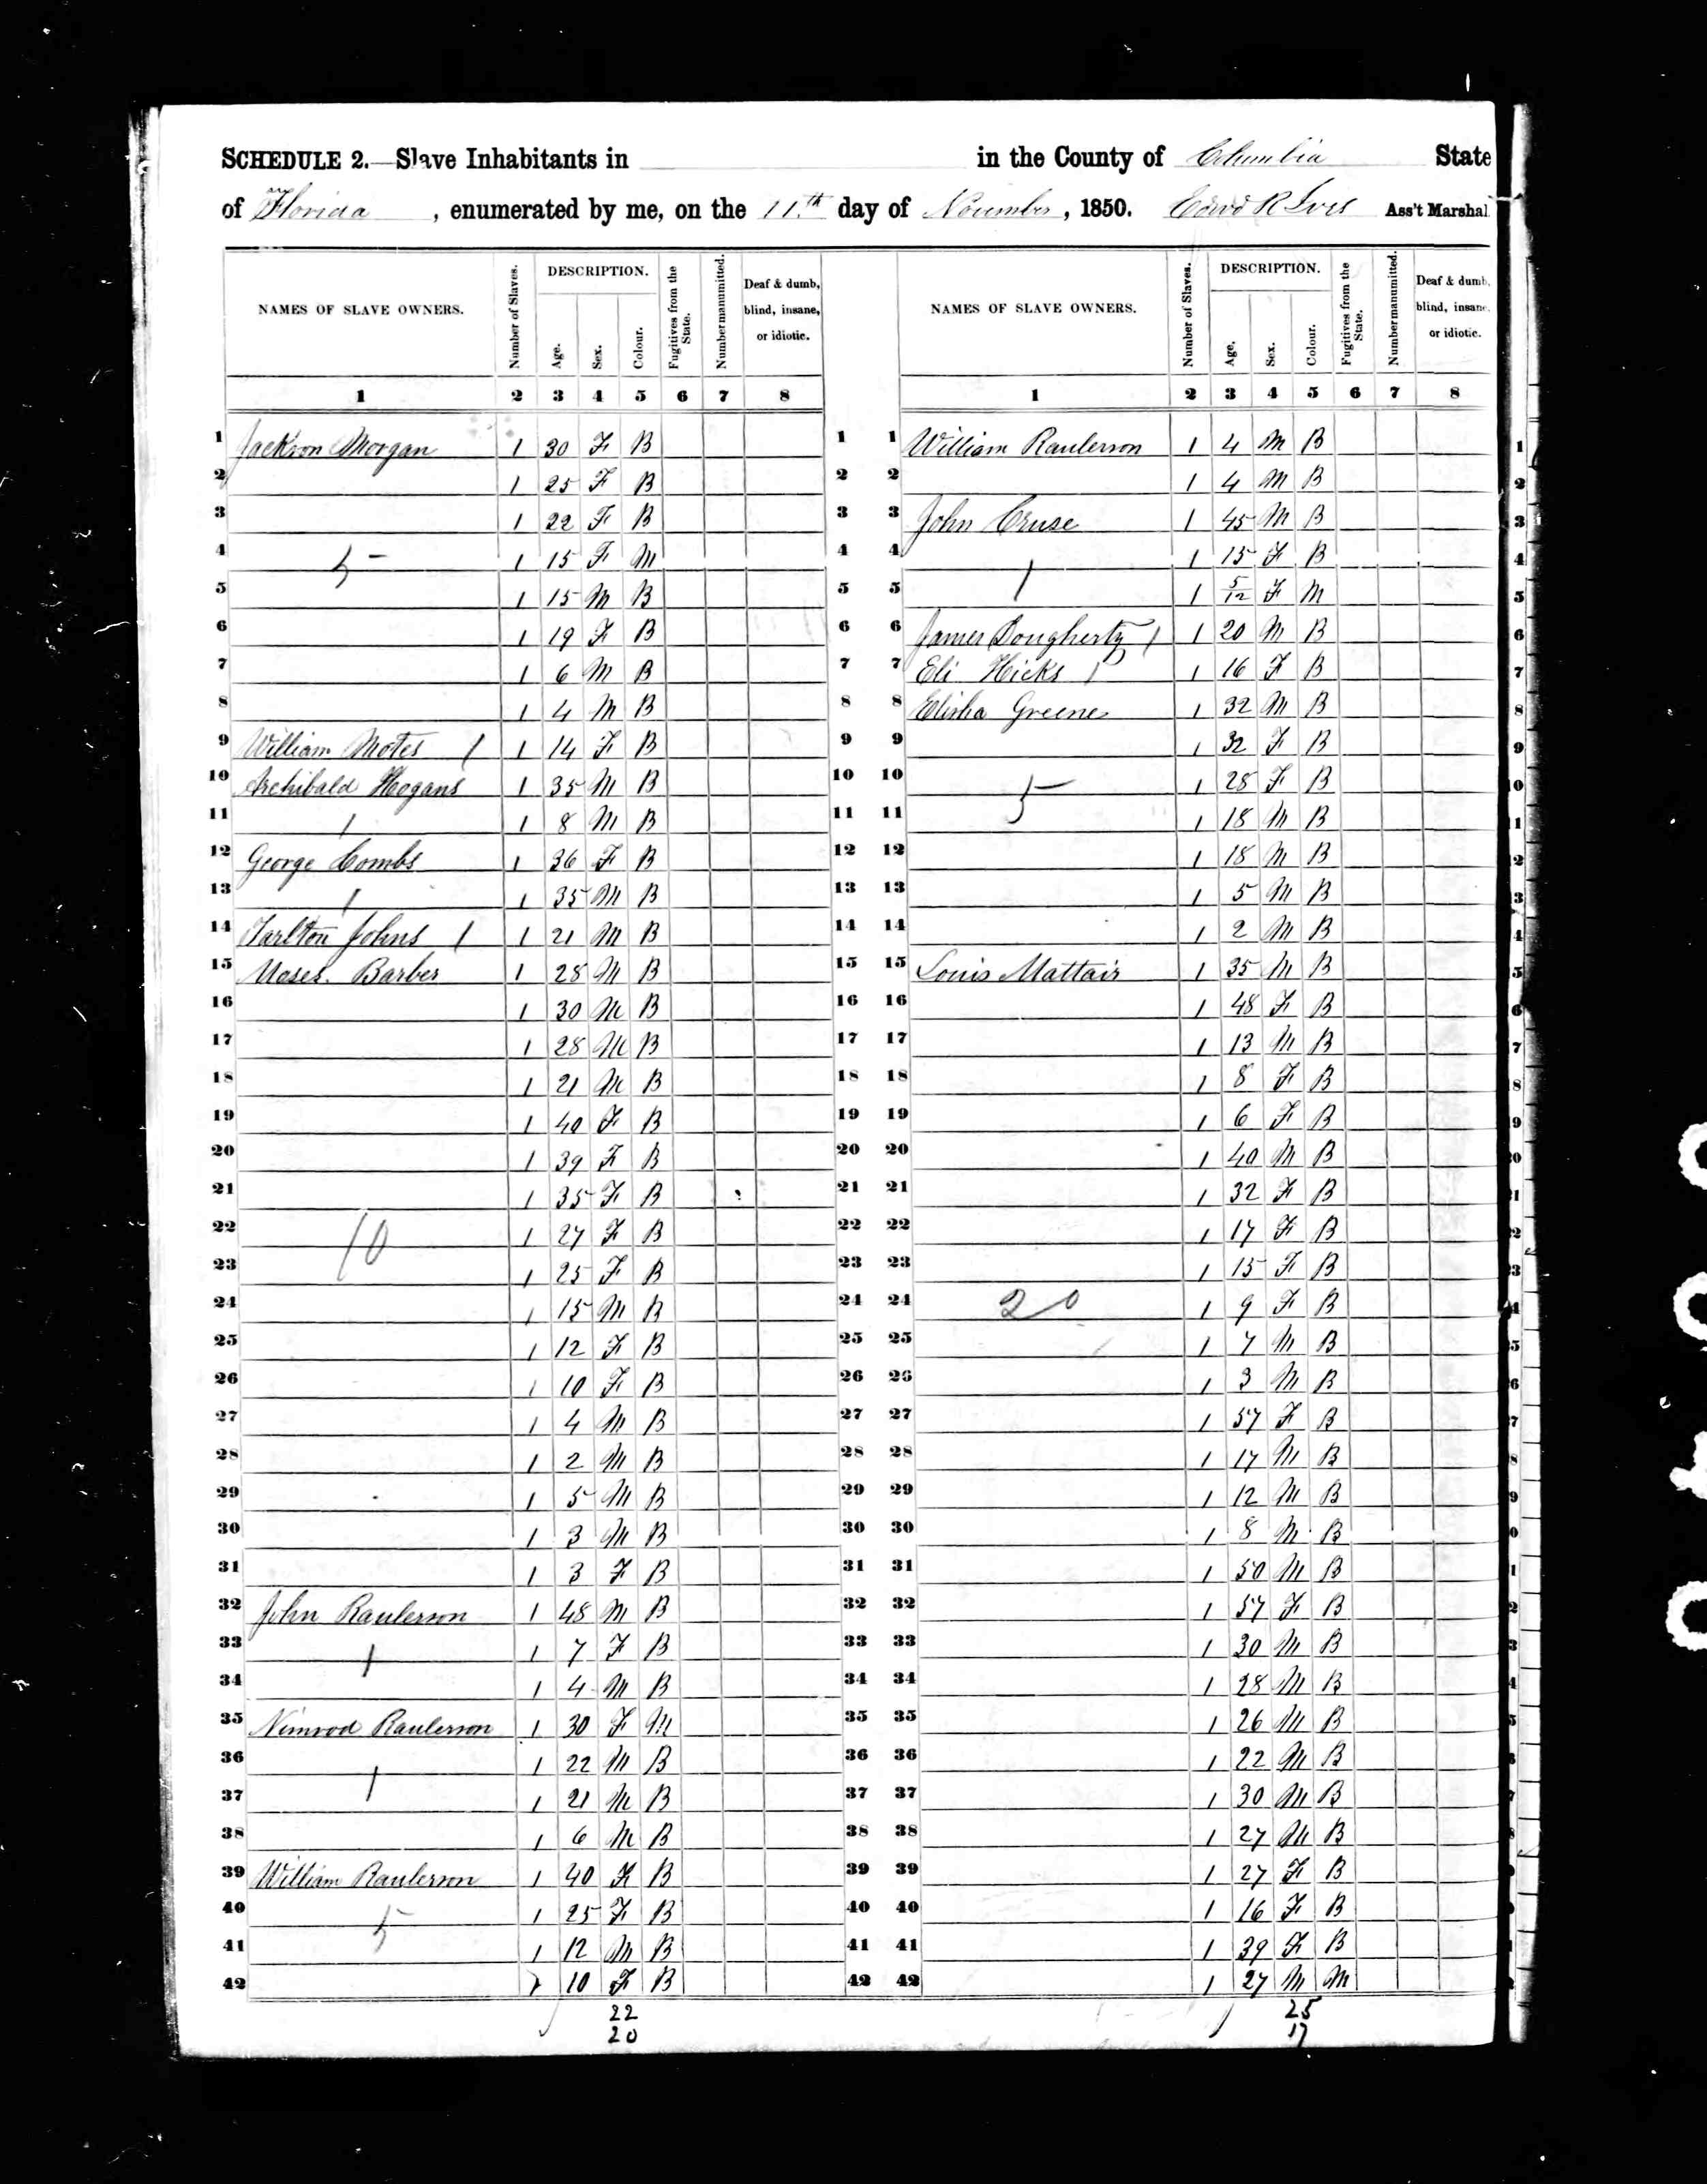 SCHEDULE 2.—Slave Inhabitants in in the County of Columbia State
of Florida, enumerated by me, on the 11th day of November, 1850. Edwd R Ives Ass't Marshal
NAMES OF SLAVE OWNERS. Number of Slaves. DESCRIPTION. Age. Sex. Colour. Fugitives from the State. Number manumitted. Deaf & dumb, blind, insane, or idiotic.
1 2 3 4 5 6 7 8
1 Jackson Morgan 1 30 F B 1
2 1 25 F B 2
3 1 22 F B 3
4 5 1 15 F M 4
5 1 15 M B 5
6 1 19 F B 6
7 1 6 M B 7
8 1 4 M B 8
9 William Motes 1 1 14 F B 9
10 Archibald Hogans 1 35 M B 10
11 1 1 8 M B 11
12 George Combs 1 36 F B 12
13 1 1 35 M B 13
14 Tarlton Johns 1 1 21 M B 14
15 Moses Barber 1 28 M B 15
16 1 30 M B 16
17 1 28 M B 17
18 1 21 M B 18
19 1 40 F B 19
20 1 39 F B 20
21 1 35 F B 21
22 10 1 27 F B 22
23 1 25 F B 23
24 1 15 M B 24
25 1 12 F B 25
26 1 10 F B 26
27 1 4 M B 27
28 1 2 M B 28
29 1 5 M B 29
30 1 3 M B 30
31 1 3 F B 31
32 John Raulerson 1 48 M B 32
33 1 1 7 F B 33
34 1 4 M B 34
35 Nimrod Raulerson 1 30 F M 35
36 1 1 22 M B 36
37 1 21 M B 37
38 1 6 M B 38
39 William Raulerson 1 40 F B 39
40 5 1 25 F B 40
41 1 12 M B 41
42 1 10 F B 42
22
20
NAMES OF SLAVE OWNERS. Number of Slaves. DESCRIPTION. Age. Sex. Colour. Fugitives from the State. Number manumitted. Deaf & dumb, blind, insane, or idiotic.
1 2 3 4 5 6 7 8
1 William Raulerson 1 4 M B 1
2 1 4 M B 2
3 John Cruse 1 45 M B 3
4 1 15 F B 4
5 1 1 5/12 F M 5
6 James Dougherty 1 1 20 M B 6
7 Eli Hicks 1 1 16 F B 7
8 Elisha Greene 1 32 M B 8
9 1 32 F B 9
10 5 1 28 F B 10
11 1 18 M B 11
12 1 18 M B 12
13 1 5 M B 13
14 1 2 M B 14
15 Louis Mattair 1 35 M B 15
16 1 48 F B
17 1 13 M B
18 1 8 F B
19 1 6 F B
20 1 40 M B
21 1 32 F B
22 1 17 F B
23 1 15 F B
24 20 1 9 F B
25 1 7 M B
26 1 3 M B
27 1 57 F B
28 1 17 M B
29 1 12 M B
30 1 8 M B
31 1 50 M B
32 1 57 F B
33 1 30 M B
34 1 28 M B
35 1 26 M B
36 1 22 M B
37 1 30 M B
38 1 27 M B
39 1 27 F B
40 1 16 F B
41 1 39 F B
42 1 27 M M
25
17